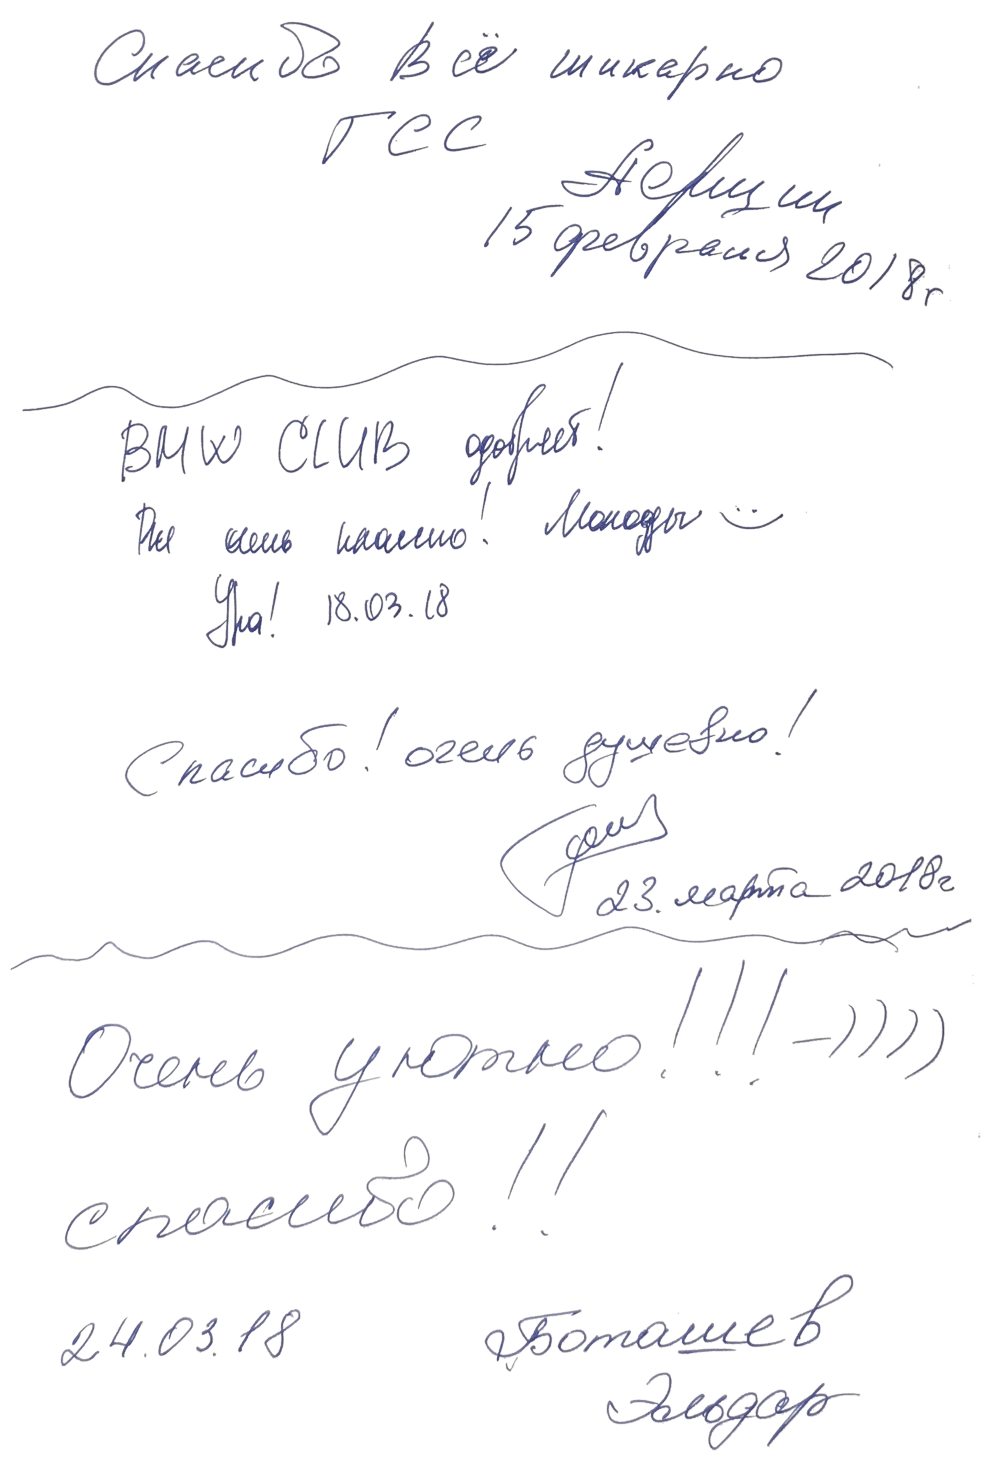 Спасибо Всё шикарно
ГСС
15 февраля 2018г
BMW CLUB одобряет!
очень классно! Молодцы
Ура! 18.03.18
Спасибо! очень душевно!
23. марта 2018г
Очень уютно!!! –))))
спасибо!!
24.03.18 Боташев
Эльдар